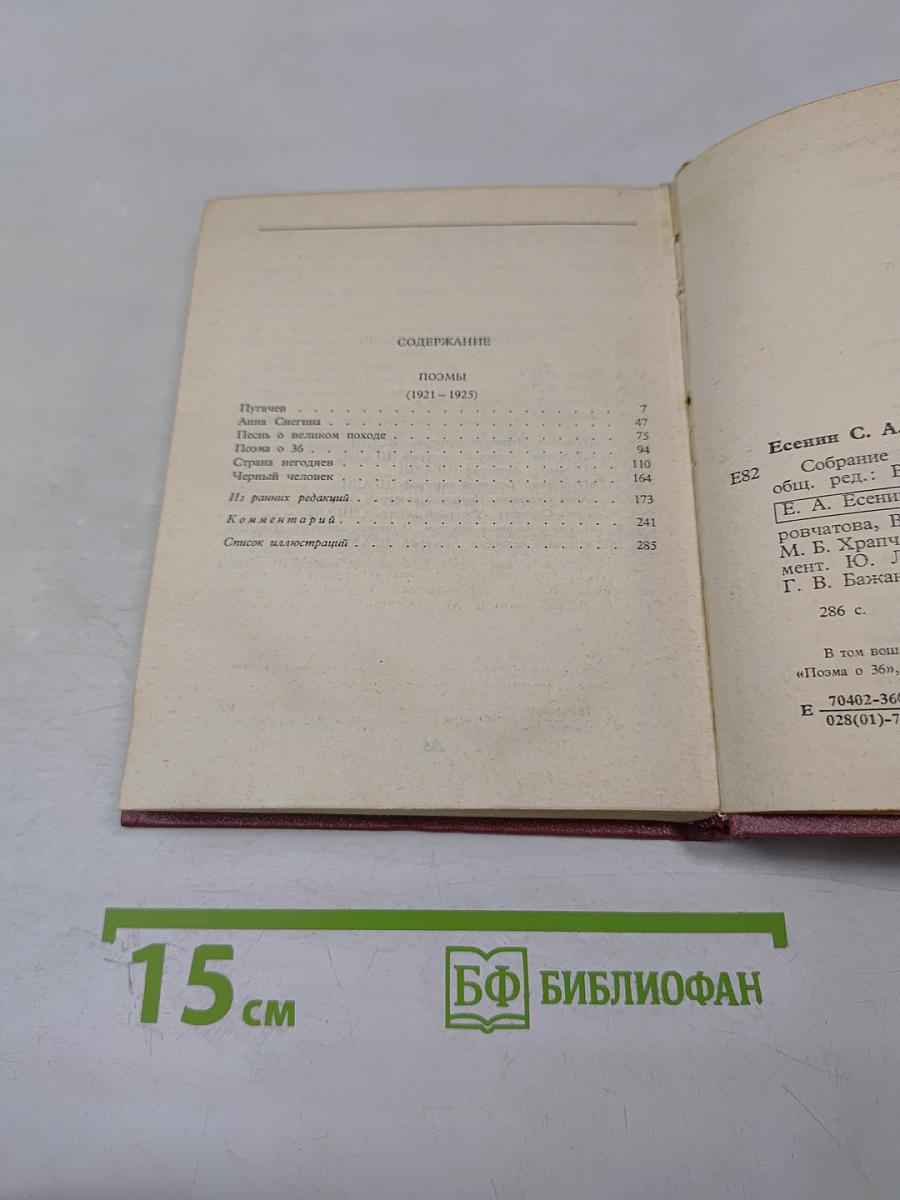 СОДЕРЖАНИЕ
ПОЭМЫ
(1921 – 1925)
Пугачев . . . . . . . . . . . . . . . . . . . . 7
Анна Снегина . . . . . . . . . . . . . . . . . . 47
Песнь о великом походе . . . . . . . . . . . . . . 75
Поэма о 36 . . . . . . . . . . . . . . . . . . . 94
Страна негодяев . . . . . . . . . . . . . . . . . 110
Черный человек . . . . . . . . . . . . . . . . . 164
Из ранних редакций . . . . . . . . . . . . . . . . 173
Комментарий . . . . . . . . . . . . . . . . . . 241
Список иллюстраций . . . . . . . . . . . . . . . . 285
Есенин С. А.
Е82
Собрание
общ. ред.:
Е. А. Есенин
ровчатова, В
М. Б. Храпч
мент. Ю. Л
Г. В. Бажан
286 с.
В том вош
«Поэма о 36»,
Е 70402-36
028(01)-7
15 см
БФ БИБЛИОФАН